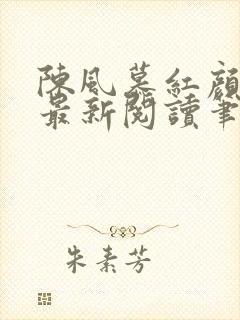 陳風慕紅顏
最新閱讀筆
朱素芳